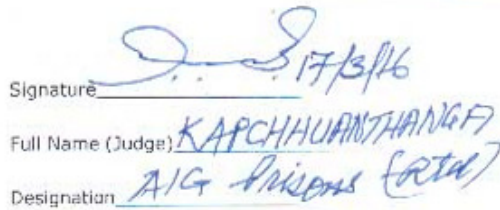 17/3/16
Signature
Full Name (Judge) KAPCHHUANTHANGA
Designation AIG Prisons (Rtd)